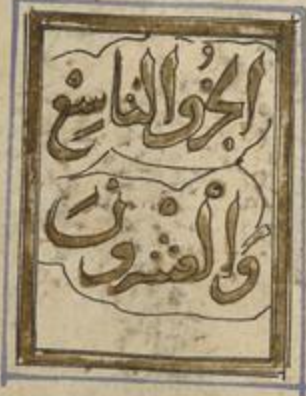 الجُزو التاسِع
وَالعشرونَ